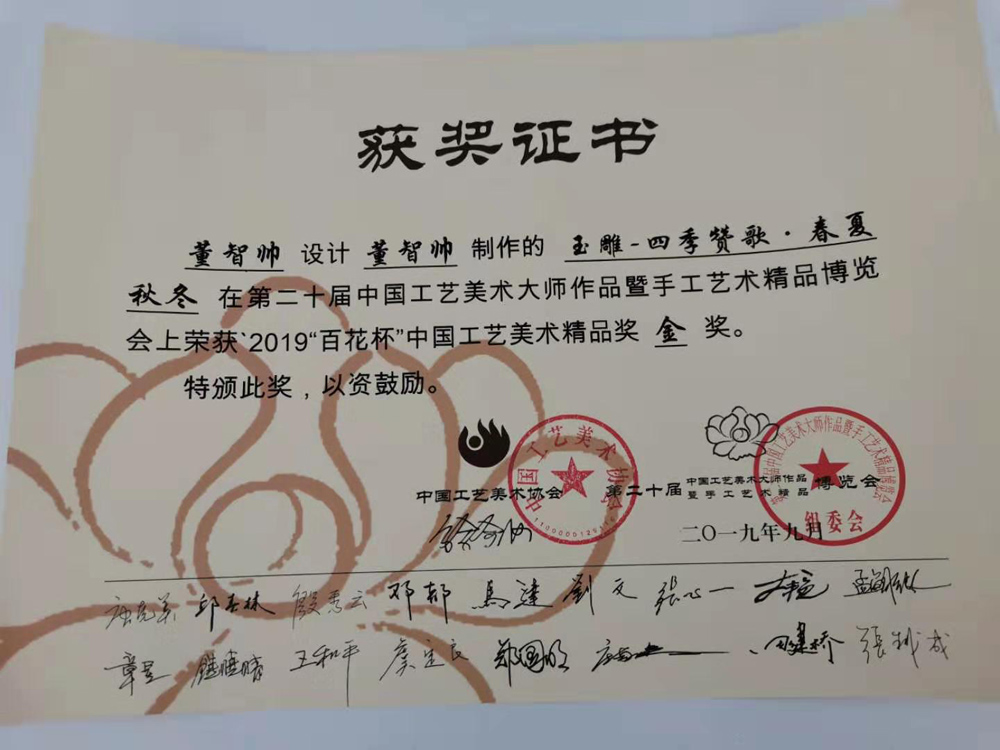 获奖证书
董智帅 设计 董智帅 制作的 玉雕-四季赞歌·春夏
秋冬 在第二十届中国工艺美术大师作品暨手工艺术精品博览
会上荣获`2019“百花杯”中国工艺美术精品奖 金 奖。
特颁此奖，以资鼓励。
中国工艺美术协会
中国工艺美术协会
第二十届 中国工艺美术大师作品
暨手工艺术精品 博览会
组委会
二〇一九年九月
邱春林 殷秀云 邓郁 馬建 劉文 張心一
王和平 郑国明 田建桥